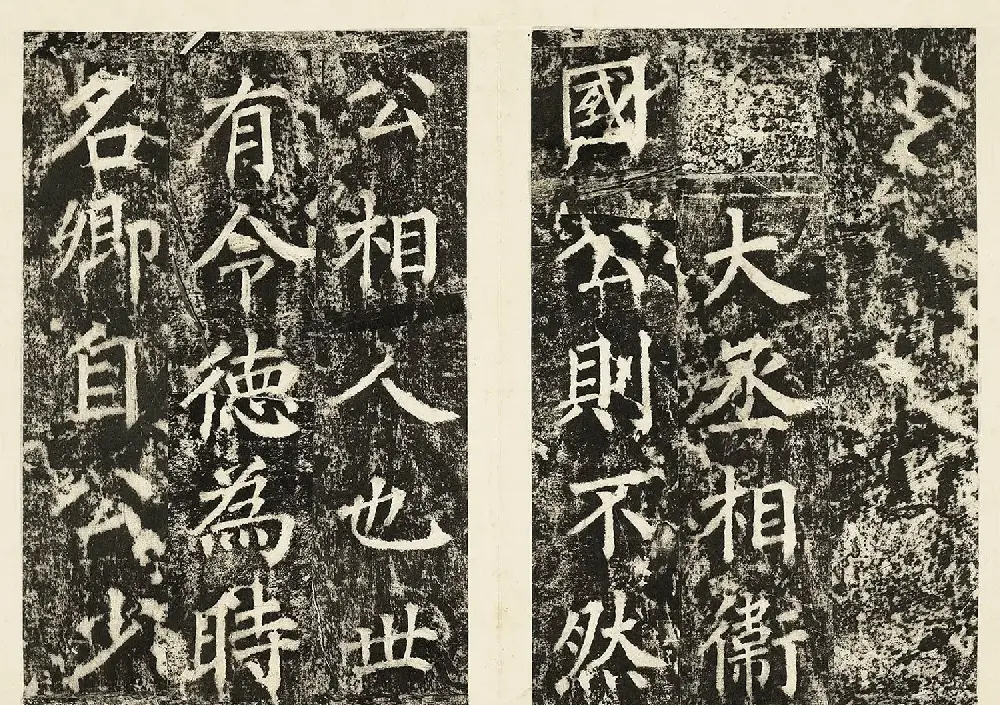 大丞相衛
國公則不然
公相人也世
有令德為時
名卿自公少